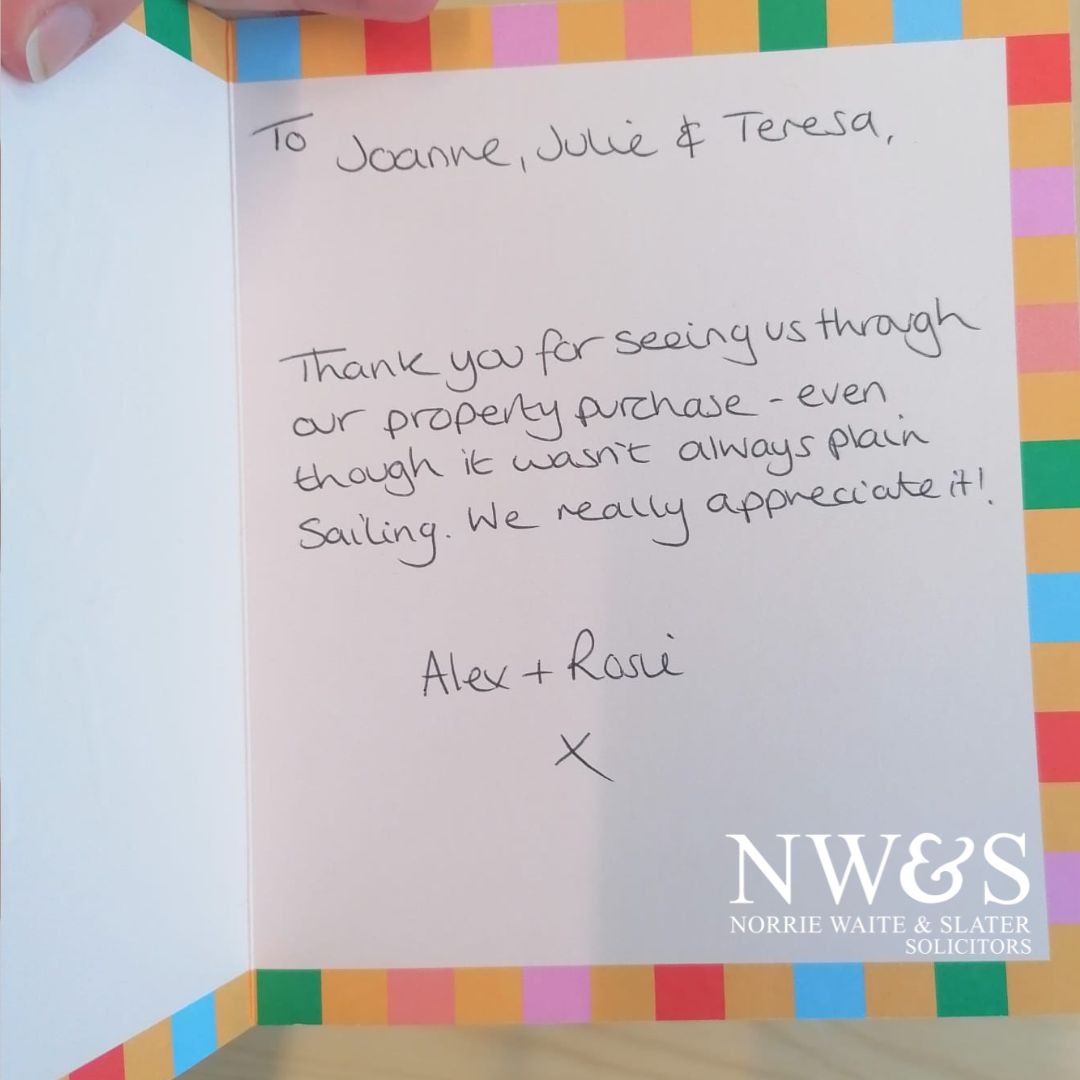 To Joanne, Julie & Teresa,
Thank you for seeing us through
our property purchase - even
though it wasn't always plain
Sailing. We really appreciate it!
Alex + Rosie
X
NW&S
NORRIE WAITE & SLATER
SOLICITORS